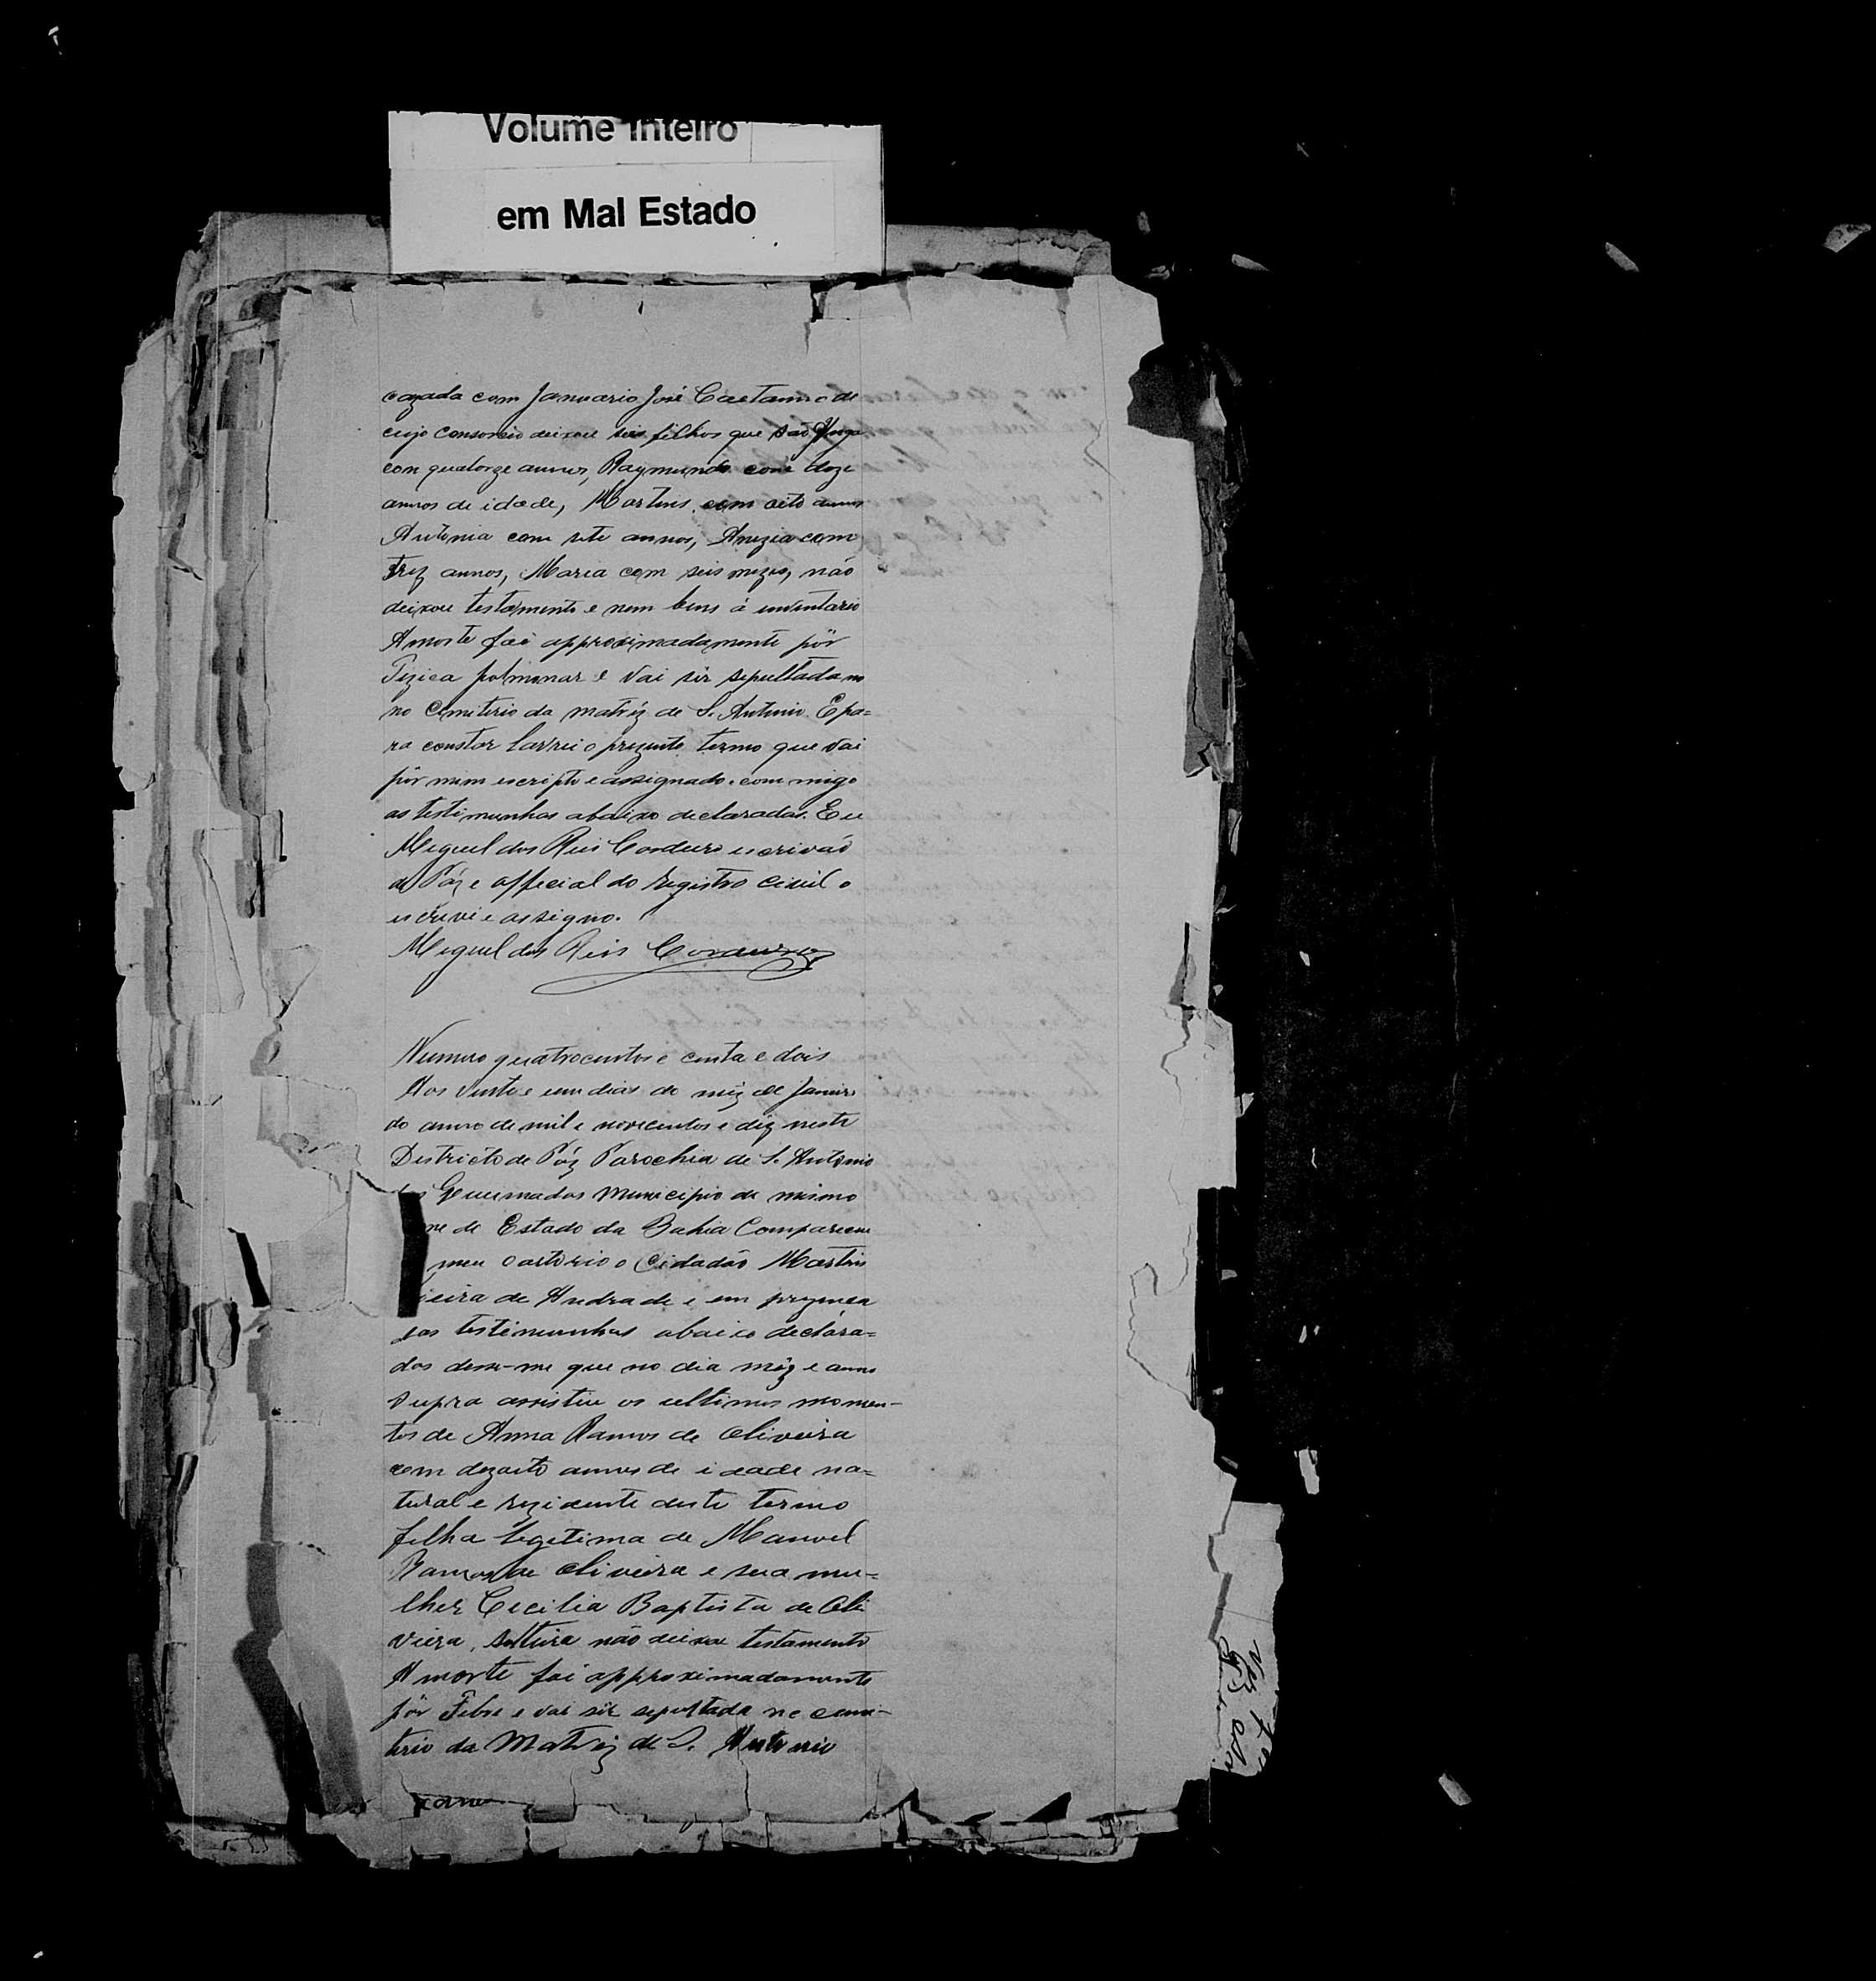 Volume Inteiro
em Mal Estado
cazada com Januario José Caetano de
cujo consorcio deixou seis filhos que são
com quatorze annos, Raymundo com doze
annos de idade, Martins com oito annos
Antonia com sete annos, Anezia com
trez annos, Maria com seis mezes, não
deixou testamento e nem bens á inventario
A morte foi approximadamente pör
Tizica polmonar e vai sêr sepultada no
no Cemiterio da matriz de S. Antonio. E pa=
ra constar lavrei o prezente termo que vai
pôr mim escripto e assignado com migo
as testimunhas abaixo declaradas. Eu
Miguel dos Reis Cordeiro escrivão
de Páz e official do registro civil o
escrevi e assigno.
Miguel dos Reis Cordeiro
Numero quatrocentos e centa e dois
Aos vinte e um dias do mêz de Janeiro
do anno de mil e novecentos e dez neste
Districto de Páz Parochia de S. Antonio
das Queimadas Municipio do mesmo
me do Estado da Bahia Compareceu
meu cartorio o Cidadão Martins
ieira de Andrade e em prezença
das testimunhas abaixo declara=
das disse-me que no dia mêz e anno
supra assistiu os ultimos momen-
tos de Anna Ramos de Oliveira
com dezoito annos de idade na=
tural e rezidente deste termo
filha legetima de Manoel
Ramos de Oliveira e sua mu=
lher Cecilia Baptista de Oli
veira, solteira não deixou testamento
A morte foi approximadamente
pôr Febre e vai sêr sepultada no cemi-
terio da Matriz de S. Antonio